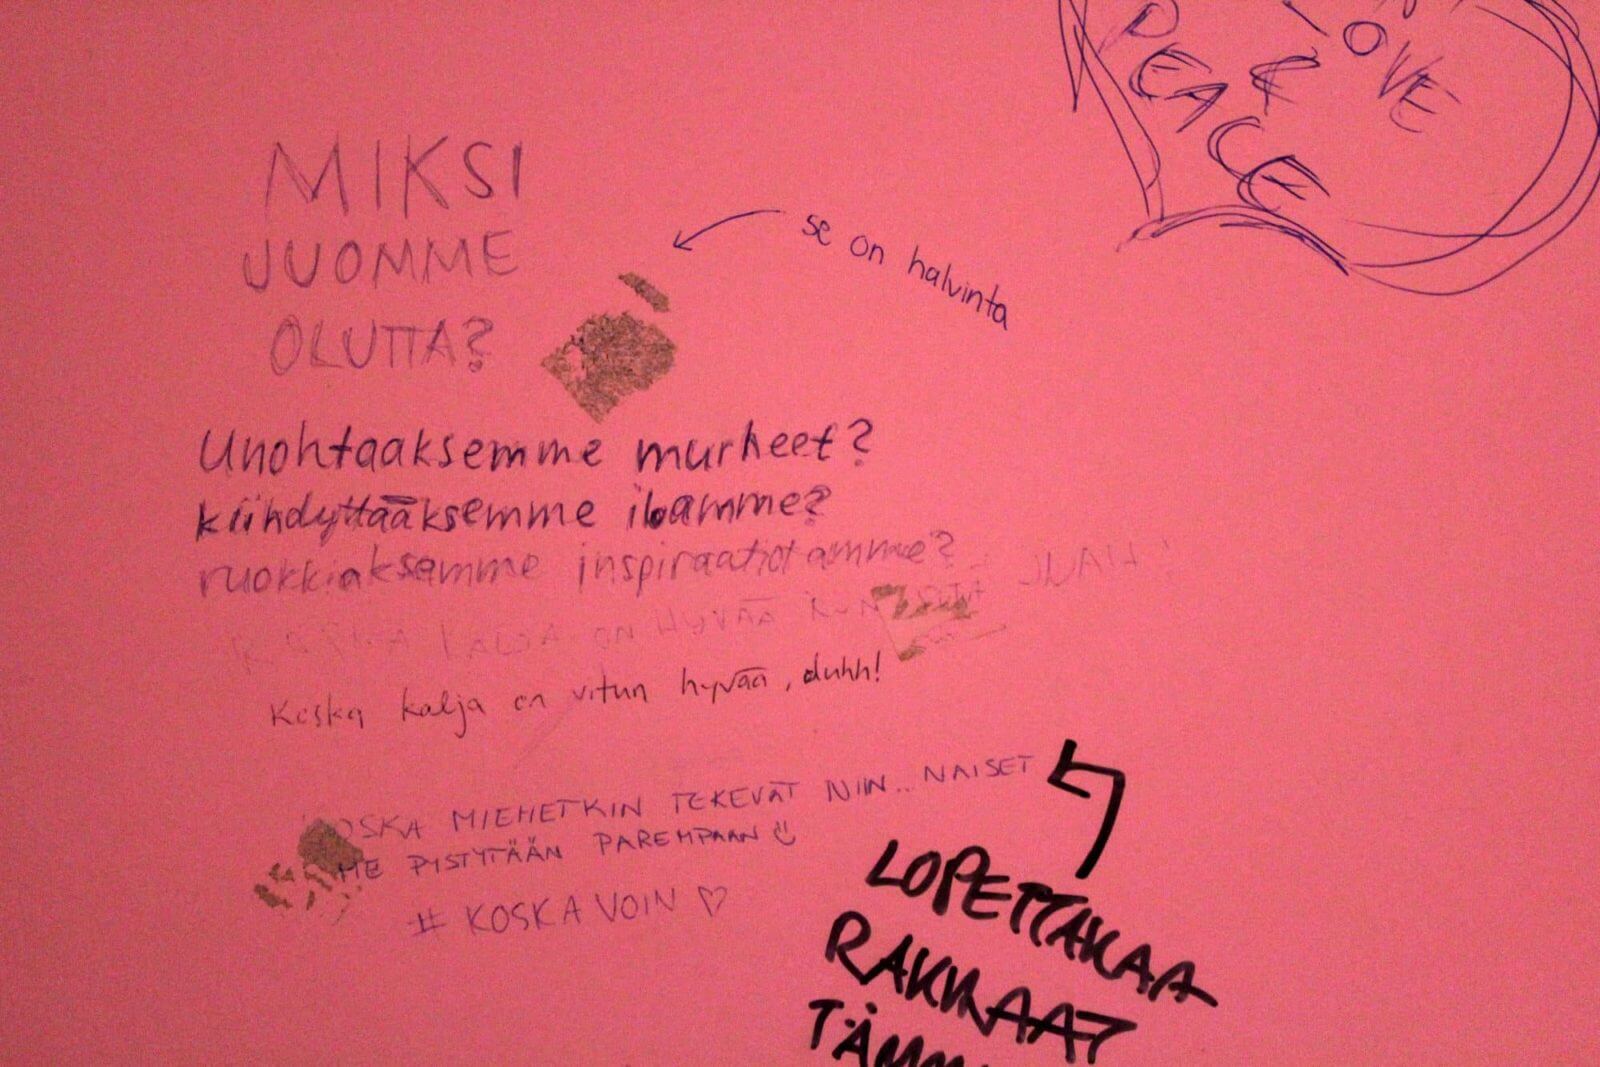 LOVE
&
PEACE
MIKSI
JUOMME
OLUTTA?
se on halvinta
Unohtaaksemme murheet?
kiihdyttääksemme iloamme?
ruokkiaksemme inspiraatiotamme?
KALJA ON HYVÄÄ KUN
Koska kalja on vitun hyvää, duhh!
KOSKA MIEHETKIN TEKEVÄT NIIN.. NAISET
ME PYSTYTÄÄN PAREMPAAN
# KOSKA VOIN ♡
LOPETTAKAA
RAKKAAT